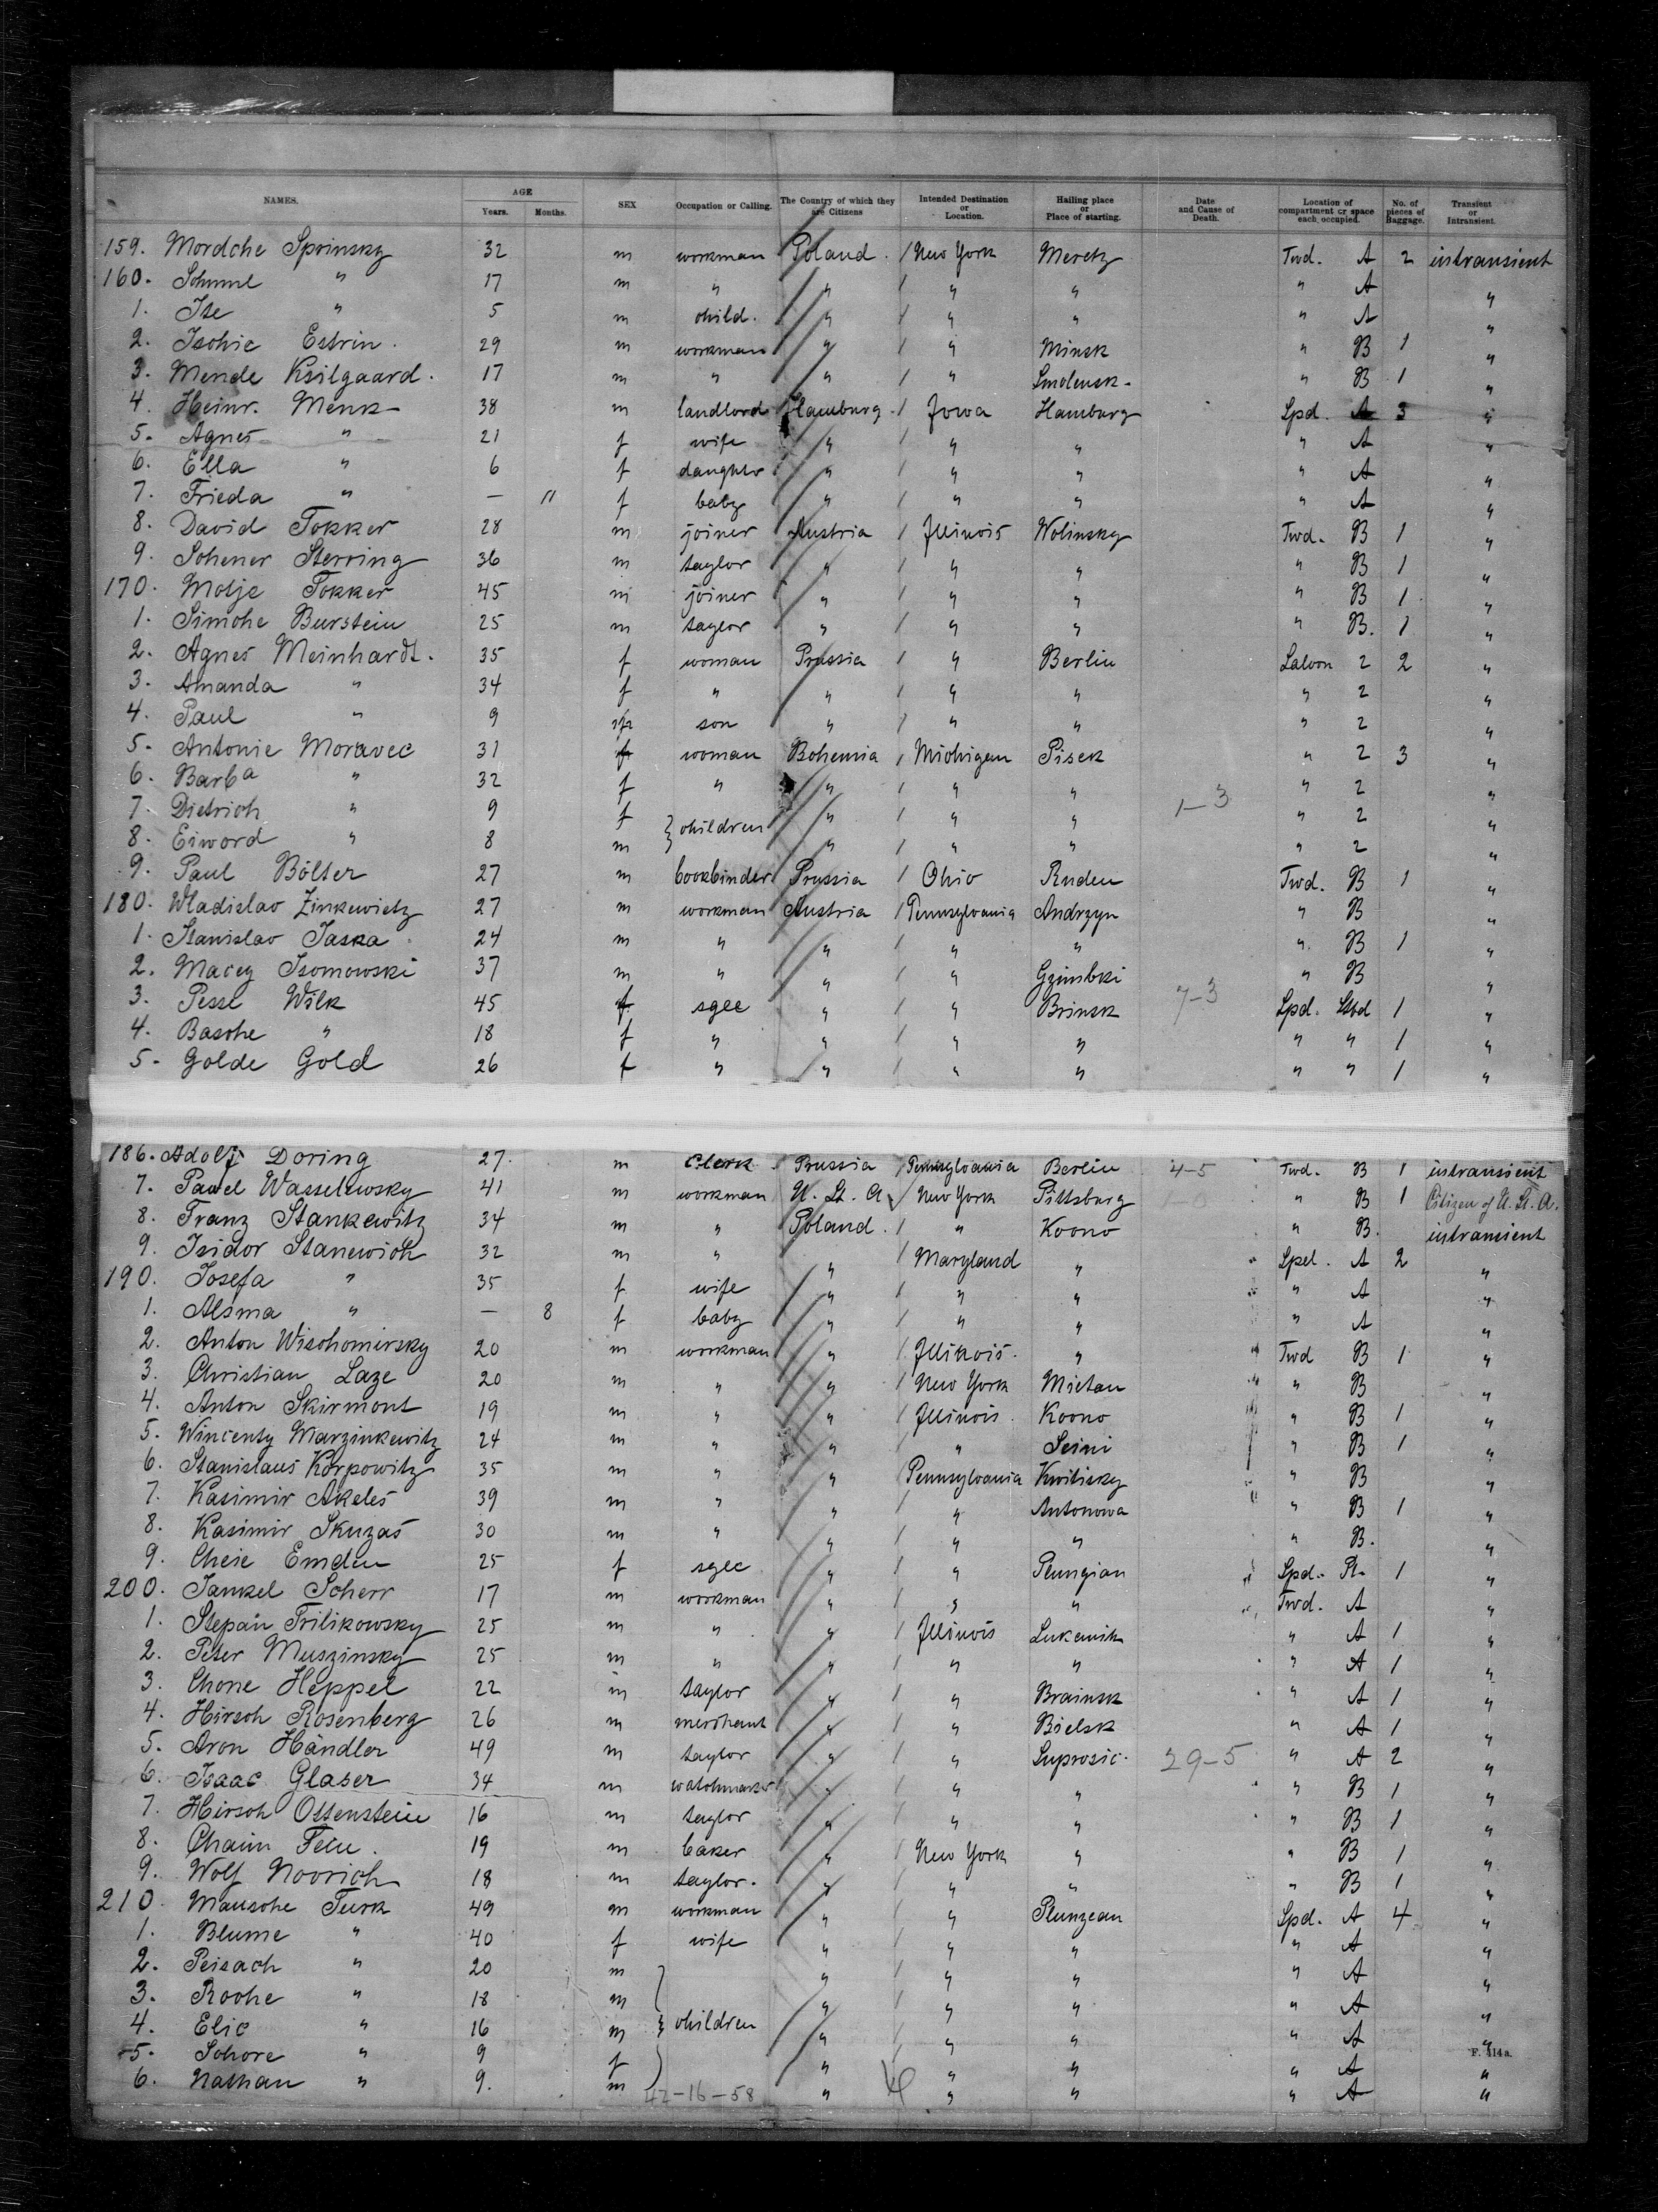 NAMES. AGE Years. Months. SEX Occupation or Calling. The Country of which they are Citizens Intended Destination or Location. Hailing place or Place of starting. Date and Cause of Death. Location of compartment or space each occupied. No. of pieces of Baggage. Transient or Intransient.
159. Mordche Sprinsky 32 m workman Poland. / New York Meretz Twd. A 2 intransient
160. Schmul " 17 m " " / " " " A "
1. Ite " 5 m child. " / " " " A "
2. Ischie Estrin. 29 m workman " / " Minsk " B 1 "
3. Mende Ksilgaard. 17 m " " / " Smolensk. " B 1 "
4. Heinr. Menk 38 m landlord Hamburg / Iowa Hamburg Spd. A 3 "
5. Agnes " 21 f wife " / " " " A "
6. Ella " 6 f daughter " / " " " A "
7. Frieda " — 11 f baby " / " " " A "
8. David Tokker 28 m joiner Austria / Illinois Wolinsky Twd. B 1 "
9. Schener Sterring 36 m taylor " / " " " B 1 "
170. Motje Tokker 45 m joiner " / " " " B 1 "
1. Simche Burstein 25 m taylor " / " " " B. 1 "
2. Agnes Meinhardt. 35 f woman Prussia / " Berlin Saloon 2 2 "
3. Amanda " 34 f " " / " " " 2 "
4. Paul " 9 m son " / " " " 2 "
5. Antonie Moravec 31 f woman Bohemia / Michigan Pisek " 2 3 "
6. Barba " 32 f " " / " " " 2 "
7. Dietrich " 9 f } children " / " " 1-3 " 2 "
8. Eiword " 8 m " / " " " 2 "
9. Paul Bölter 27 m bookbinder Prussia / Ohio Ruden Twd. B 1 "
180. Wladislav Zinkewietz 27 m workman Austria / Pennsylvania Andrzyn " B "
1. Stanislav Jaska 24 m " " / " " " B 1 "
2. Macey Isomowski 37 m " " / " Gzimbki " B "
3. Pesse Wilk 45 f sgle " / " Brinsk 7-3 Spd. Stbd 1 "
4. Basche " 18 f " " / " " " " 1 "
5. Golde Gold 26 f " " / " " " " 1 "
186. Adolf Doring 27. m Clerk Prussia / Pennsylvania Berlin 4-5 Twd. B 1 intransient
7. Pawel Wasselewsky 41 m workman U. St. A / New York Pittsburg " B 1 Citizen of U. St. A.
8. Franz Stankewitz 34 m " Poland. / " Kovno " B. intransient
9. Isidor Stanewich 32 m " " / Maryland " Sped. A 2 "
190. Josefa " 35 f wife " / " " " A "
1. Alsma " — 8 f baby " / " " " A "
2. Anton Wischomirsky 20 m workman " / Illinois. " Twd B 1 "
3. Christian Laze 20 m " " / New York Mietau " B "
4. Anton Skirmont 19 m " " / Illinois. Kovno " B 1 "
5. Wincenty Marzinkewitz 24 m " " / " Seini " B 1 "
6. Stanislaus Korpowitz 35 m " " Pennsylvania Kwilisky " B "
7. Kasimir Akeles 39 m " " / " Antonowa " B 1 "
8. Kasimir Skuzas 30 m " " / " " " B. "
9. Cheie Emden 25 f sgle " / " Plungian Spd. Pt. 1 "
200. Jankel Scherr 17 m workman " / " " Twd. A "
1. Stepan Trilikowsky 25 m " " / Illinois Lukenik " A 1 "
2. Peter Muszinsky 25 m " " / " " " A 1 "
3. Chone Heppel 22 m taylor " / " Brainsk " A 1 "
4. Hirsch Rosenberg 26 m merchant " / " Bielsk " A 1 "
5. Aron Händler 49 m taylor " / " Suprosic. 29-5 " A 2 "
6. Isaac Glaser 34 m watchmaker " / " " " B 1 "
7. Hirsch Ottenstein 16 m taylor " / " " " B 1 "
8. Chaim Fein. 19 m baker " / New York " " B 1 "
9. Wolf Noorich 18 m taylor. " / " " " B 1 "
210. Mausche Turk 49 m workman " / " Plunzean Spd. A 4 "
1. Blume " 40 f wife " / " " " A "
2. Peisach " 20 m } " / " " " A "
3. Roche " 18 m " / " " " A "
4. Elie " 16 m } children " / " " " A "
5. Schore " 9 f } " " " " A "
F. 414a.
6. Nathan " 9. m " " " " A "
42-16-58